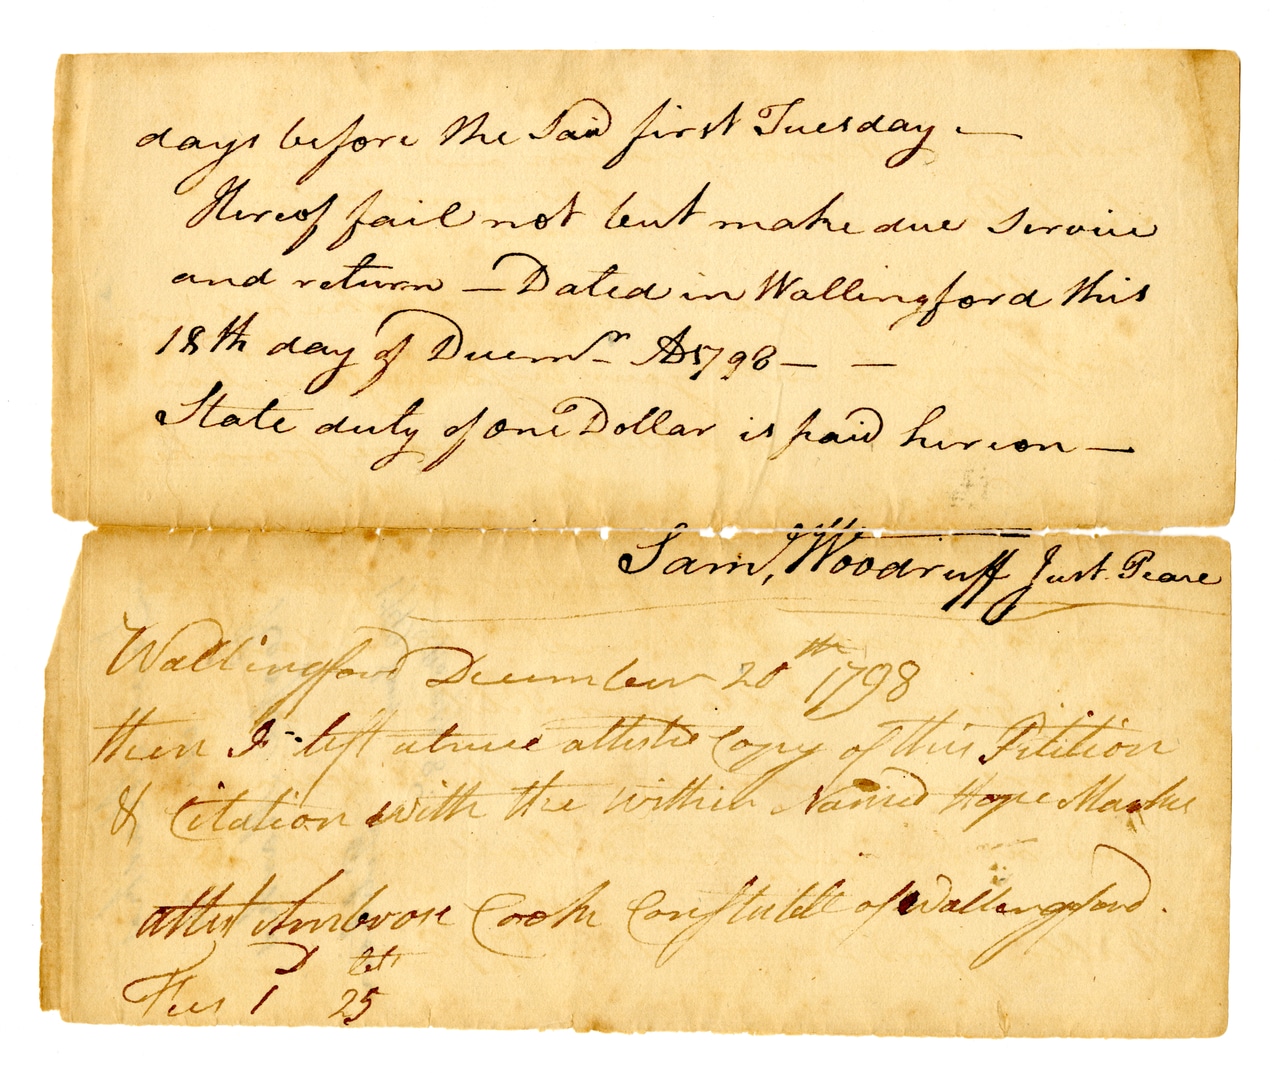 days before the Said first Tuesday —
Hereof fail not but make due Service
and return — Dated in Wallingford this
18th day of Decemr AD 1798 — —
State duty of one Dollar is paid hereon —
Saml, Woodruff Just. Peace
Wallingford December 20th 1798
then I left a true attested Copy of this Petition
& Citation with the within Named Hope Marks
attest Ambrose Cooke Constable of Wallingford.
D cts
Fees 1 25